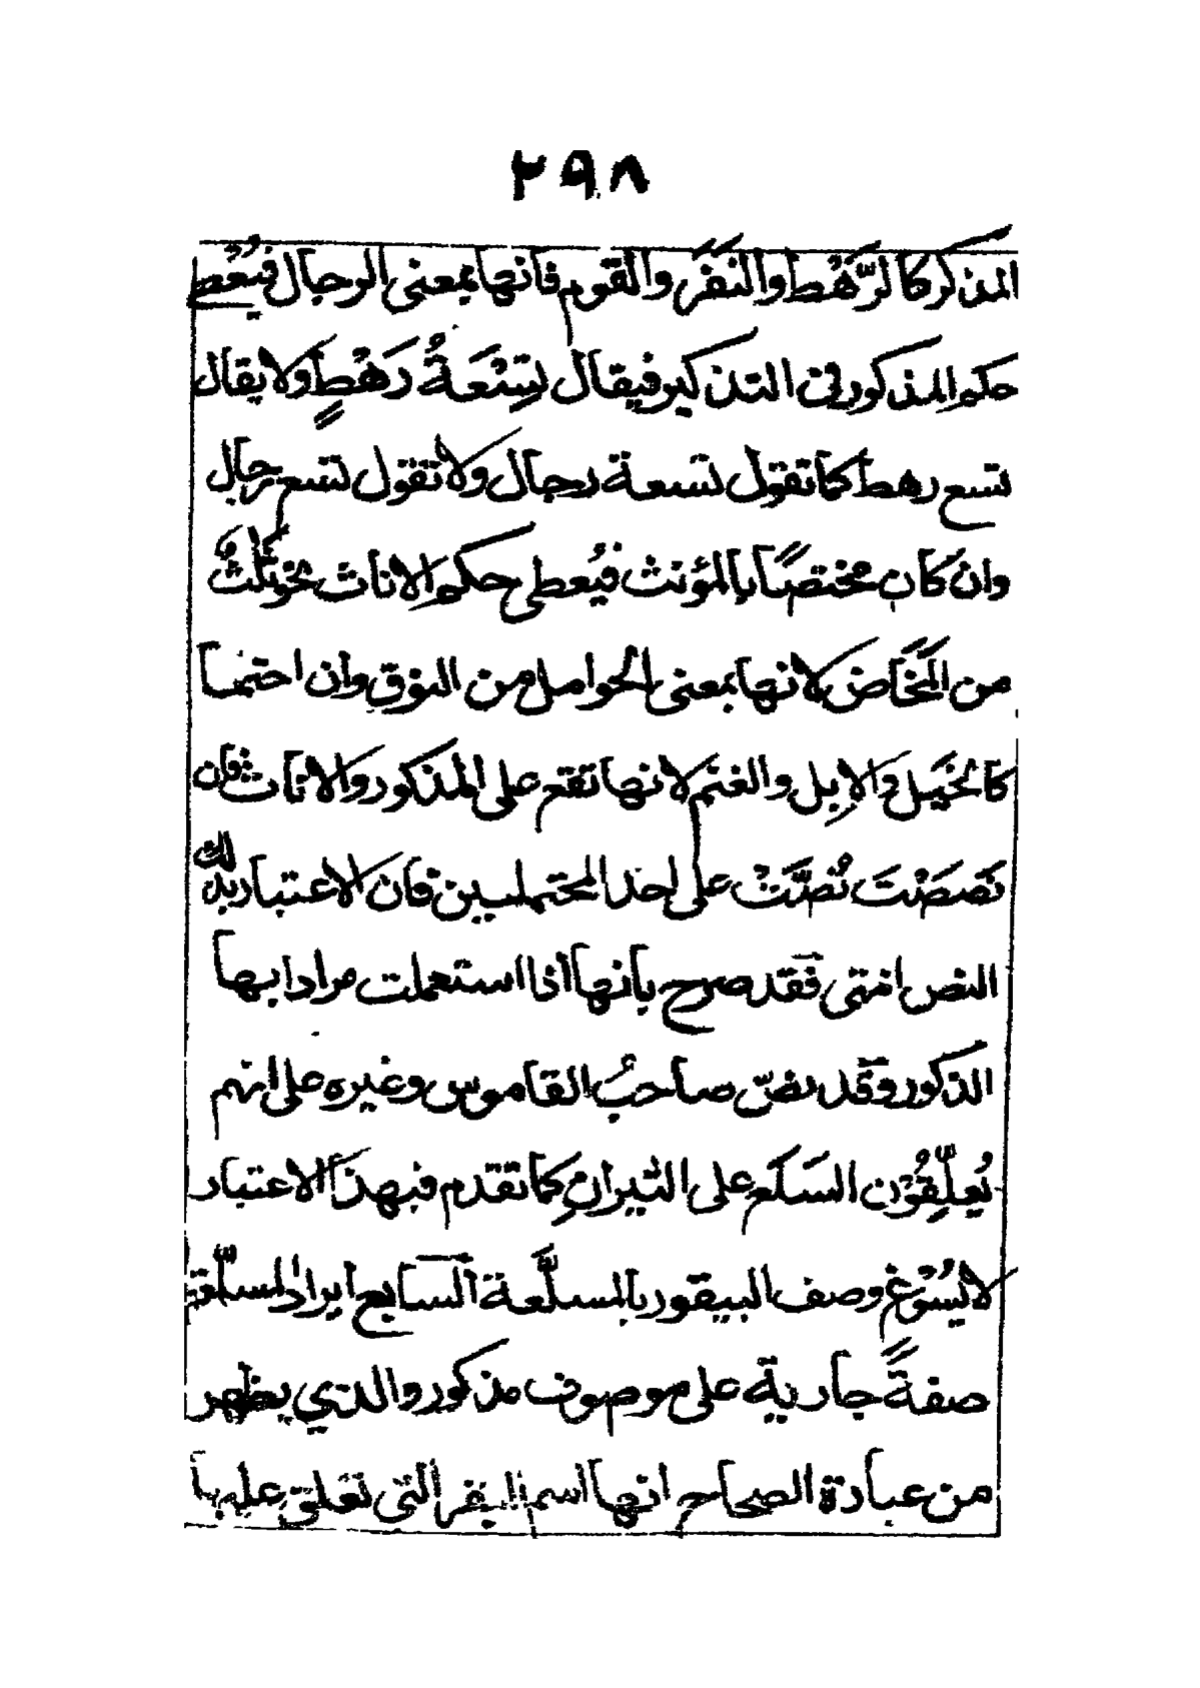 ٢٩٨
المذكر كالرَّهْط والنَفَر والقوم فانها بمعنى الرجال فيُعْط
حكم المذكور في التذكير فيقال تِسْعَةُ رَهْطٍ ولا يقال
تسع رهط كما تقول تسعة رجال ولا تقول تسع رجال
وان كان مختصًا بالمؤنث فيُعطى حكم الاناث نحو ثلاثٌ
من المَخَاض لانها بمعنى الحوامل من النوق وان احتملها
كالخَيْل والإبل والغنم لانها تقع على المذكور والاناث فان
نَصَصْتَ نُصَّتْ على احد المحتملين فان الاعتبار بذلك
النص انتهى فقد صرح بأنها أذا استعملت مرادا بها
الذكور وقد نصّ صاحبُ القاموس وغيره على انهم
يُعلِّقُوْن السَلَع على الثيرانِ كما تقدم فبهذا الاعتبار
لا يُسَوّغ وصف البيقور بالمسلَّعة السابع ايراد المسلّعة
صفةً جارية على موصوف مذكور والذي يظهر
من عبارة الصحاح انها اسم للبقر التي تعلق عليها